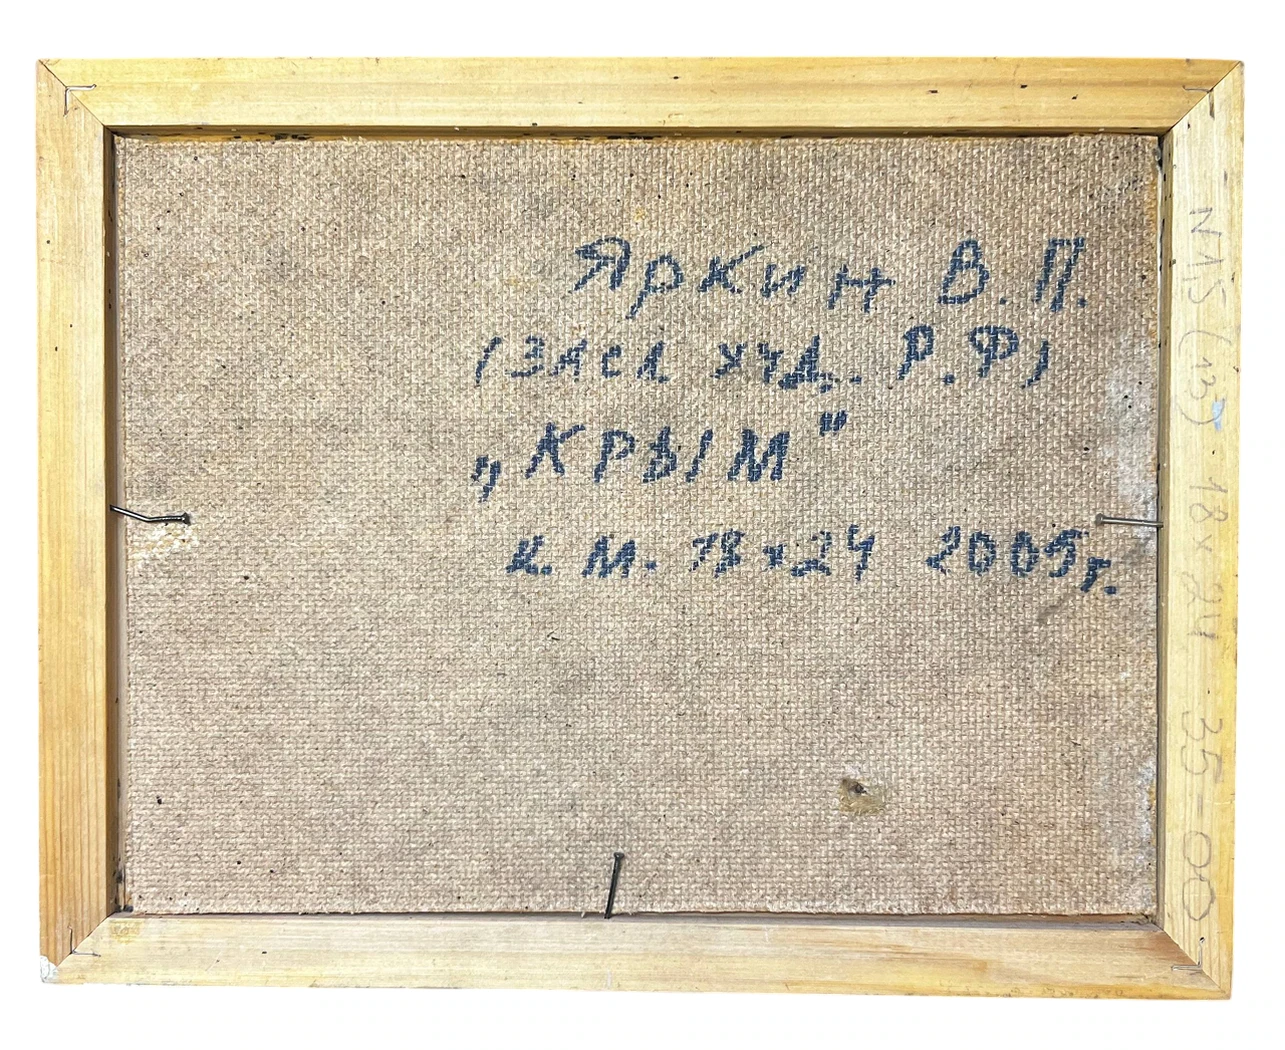 Яркин В.П.
(Засл худ. Р.Ф)
„Крым"
к. м. 18х24 2005г.
N15 (13) 18х24 35-00